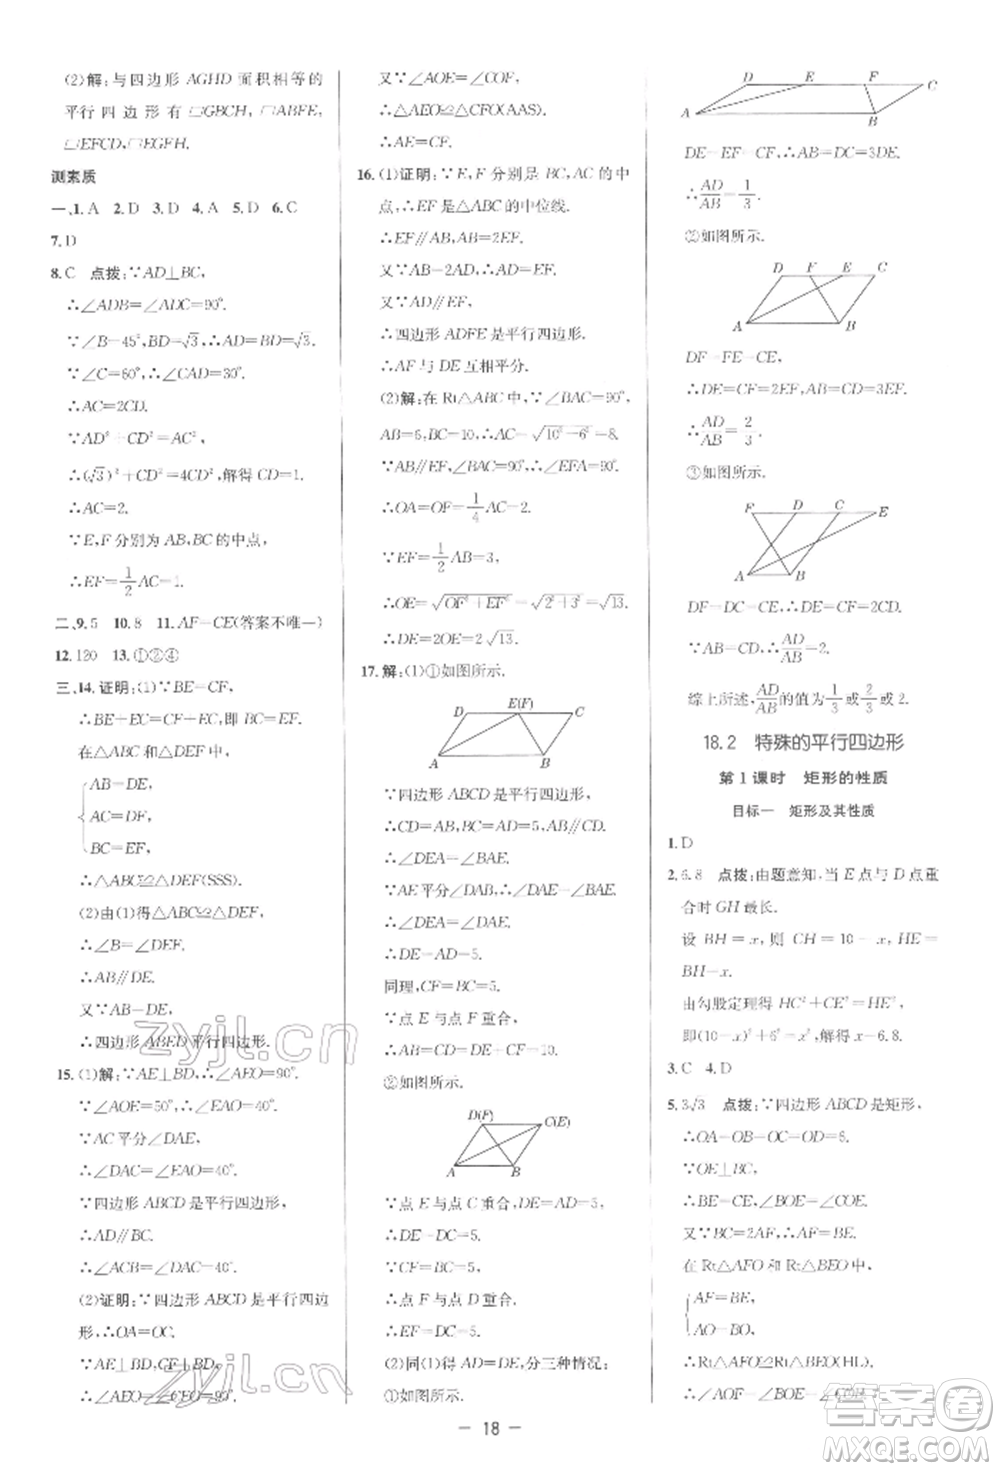 (2)解:与四边形 AGHD 面积相等的
平行四边形有▱GBCH,▱ABFE,
▱EFCD,▱EGFH.
测素质
一、1. A 2. D 3. D 4. A 5. D 6. C
7. D
8. C 点拨:∵AD⊥BC,
∴∠ADB=∠ADC=90°.
∵∠B=45°,∴BD=AD=√3.
∵∠C=60°,∴∠CAD=30°.
∴AC=2CD.
∵AD²+CD²=AC²,
∴(√3)²+CD²=4CD²,解得CD=1.
∴AC=2.
∵E,F 分别为 AB,BC 的中点,
∴EF=1/2 AC=1.
二、9. 5 10. 8 11. AF=CE(答案不唯一)
12. 120 13. ①②④
三、14. 证明:(1)∵BE=CF,
∴BE+EC=CF+EC,即 BC=EF.
在△ABC 和△DEF 中,
AB=DE,
AC=DF,
BC=EF,
∴△ABC≌△DEF(SSS).
(2)由(1)得△ABC≌△DEF,
∴∠B=∠DEF.
∴AB∥DE.
又∵AB=DE,
∴四边形 ABED 平行四边形.
15. (1)解:∵AE⊥BD,∴∠AEO=90°.
∵∠AOE=50°,∴∠EAO=40°.
∵AC 平分∠DAE,
∴∠DAC=∠EAO=40°.
∵四边形 ABCD 是平行四边形,
∴AD∥BC.
∴∠ACB=∠DAC=40°.
(2)证明:∵四边形 ABCD 是平行四边
形,∴OA=OC.
∵AE⊥BD,CF⊥BD,
∴∠AEO=∠CFO=90°.
又∵∠AOE=∠COF,
∴△AEO≌△CFO(AAS).
∴AE=CF.
16. (1)证明:∵E,F 分别是 BC,AC 的中
点,∴EF 是△ABC 的中位线.
∴EF∥AB,AB=2EF.
又∵AB=2AD,∴AD=EF.
又∵AD∥EF,
∴四边形 ADFE 是平行四边形.
∴AF 与 DE 互相平分.
(2)解:在 Rt△ABC 中,∵∠BAC=90°,
AB=6,BC=10,∴AC=√(10²-6²)=8.
∵AB∥EF,∠BAC=90°,∴∠EFA=90°.
∴OA=OF=1/4 AC=2.
∵EF=1/2 AB=3,
∴OE=√(OF²+EF²)=√(2²+3²)=√13.
∴DE=2OE=2√13.
17. 解:(1)①如图所示.
D E(F) C
A B
∵四边形 ABCD 是平行四边形,
∴CD=AB=10,BC=AD=5,AB∥CD.
∴∠DEA=∠BAE.
∵AE 平分∠DAB,∴∠DAE=∠BAE.
∴∠DEA=∠DAE.
∴DE=AD=5.
同理,CF=BC=5.
∵点 E 与点 F 重合,
∴AB=CD=DE+CF=10.
②如图所示.
D(F) C(E)
A B
∵点 E 与点 C 重合,DE=AD=5,
∴DE=DC=5.
∵CF=BC=5,
∴点 F 与点 D 重合.
∴EF=DC=5.
(2)同(1)得 AD=DE,分三种情况:
①如图所示.
D E F C
A B
DE=EF=CF,∴AB=DC=3DE.
∴AD/AB=1/3.
②如图所示.
D F E C
A B
DF=FE=CE,
∴DE=CF=2EF,AB=CD=3EF.
∴AD/AB=2/3.
③如图所示.
F D C E
A B
DF=DC=CE,∴DE=CF=2CD.
∵AB=CD,∴AD/AB=2.
综上所述,AD/AB的值为1/3或2/3或2.
18.2 特殊的平行四边形
第 1 课时 矩形的性质
目标一 矩形及其性质
1. D
2. 6.8 点拨:由题意知,当 E 点与 D 点重
合时 GH 最长.
设 BH=x,则 CH=10-x,HE=
BH=x.
由勾股定理得 HC²+CE²=HE²,
即(10-x)²+6²=x²,解得 x=6.8.
3. C 4. D
5. 3√3 点拨:∵四边形 ABCD 是矩形,
∴OA=OB=OC=OD=6.
∵OE⊥BC,
∴BE=CE,∠BOE=∠COE.
又∵BC=2AF,∴AF=BE.
在 Rt△AFO和Rt△BEO中,
AF=BE,
AO=BO,
∴Rt△AFO≌Rt△BEO(HL).
∴∠AOF=∠BOE=∠COE.
— 18 —
zyjl.cn
zyjl.cn
答案圈
MXQE.COM